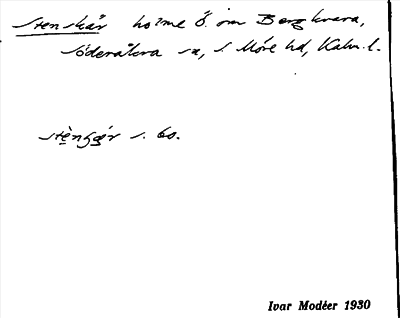 Stenskär holme Ö. om Bergkvara,
Söderåkra sn, S. Möre hd, Kalm. l.
s. bs.
Ivar Modéer 1930